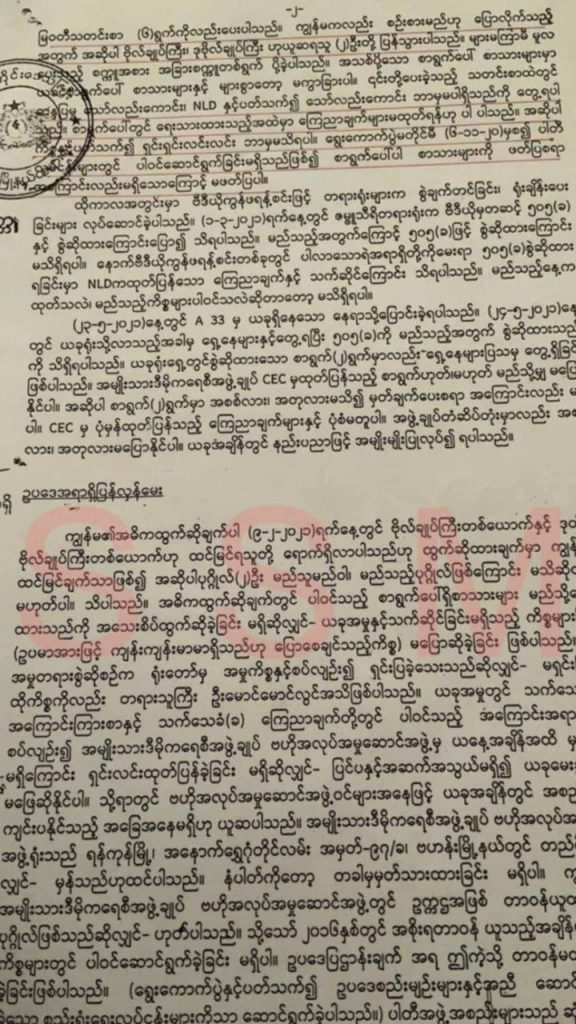 -၂-
မြဝတီသတင်းစာ (၆)ရွက်ကိုလည်းပေးပါသည်။ ကျွန်မကလည်း စဉ်းစားမည်ဟု ပြောလိုက်သည့်
အတွက် အဆိုပါ ဗိုလ်ချုပ်ကြီး၊ ဒုဗိုလ်ချုပ်ကြီး ဟုယူဆရသူ (၂)ဦးတို့ ပြန်သွားပါသည်။ များမကြာမီ မူလ
စက္ကူအစား အခြားစက္ကူတစ်ရွက် ပို့ခဲ့ပါသည်။ အသစ်ပို့သော စာရွက်ပေါ် စာသားများမှာ
စာသားနှင့် များစွာတော့ မကွာခြားပါ။ ၎င်းတို့ပေးခဲ့သည့် သတင်းစာထဲတွင်
သော်လည်းကောင်း၊ NLD နှင့်ပတ်သက်၍ သော်လည်းကောင်း ဘာမှမပါရှိသည်ကို တွေ့ရပါ
သည်။ စာရွက်ပေါ်တွင် ရေးသားထားသည့်အထဲမှာ ကြေညာချက်များမထုတ်ရန်ဟု ပါ ပါသည်။ အဆိုပါ
ကိစ္စနှင့်ပတ်သက်၍ ရှင်းရှင်းလင်းလင်း ဘာမှမသိရပါ။ ရွေးကောက်ပွဲမတိုင်မီ (၆-၁၁-၂၀)မှစ၍ ပါတီ
များတွင် ပါဝင်ဆောင်ရွက်ခြင်းမရှိသည်ဖြစ်၍ စာရွက်ပေါ်ပါ စာသားများကို ဖတ်ပြစရာ
အကြောင်းလည်းမရှိသောကြောင့် မဖတ်ပြပါ။
ထိုကာလအတွင်းမှာ ဗီဒီယိုကွန်ဖရန့်စင်းဖြင့် တရားရုံးများက စွဲချက်တင်ခြင်း၊ ရုံးချိန်းပေး
ခြင်းများ လုပ်ဆောင်ခဲ့ပါသည်။ (၁-၃-၂၀၂၁)ရက်နေ့တွင် ဇမ္ဗူသီရိတရားရုံးက ဗီဒီယိုမှတဆင့် ၅၀၅(ခ)
နှင့် စွဲဆိုထားကြောင်းပြော၍ သိရပါသည်။ မည်သည့်အတွက်ကြောင့် ၅၀၅(ခ)ဖြင့် စွဲဆိုထားကြောင်း
မသိရှိရပါ။ နောက်ဗီဒီယိုကွန်ဖရန့်စင်းတစ်ခုတွင် ပါလာသောရဲအရာရှိတို့ကိုမေးရာ ၅၀၅(ခ)စွဲဆိုထား
ရခြင်းမှာ NLDကထုတ်ပြန်သော ကြေညာချက်နှင့် သက်ဆိုင်ကြောင်း သိရပါသည်။ မည်သည့်နေ့က
ထုတ်သလဲ၊ မည်သည့်ကိစ္စများပါဝင်သလဲဆိုတာတော့ မသိရှိရပါ။
(၂၃-၅-၂၀၂၁)နေ့တွင် A 33 မှ ယခုရှိနေသော နေရာသို့ပြောင်းခဲ့ရပါသည်။ (၂၄-၅-၂၀၂၁)
တွင် ယခုရုံးသို့လာသည့်အခါမှ ရှေ့နေများနှင့်တွေ့ရပြီး ၅၀၅(ခ)ကို မည်သည့်အတွက် စွဲဆိုထားသည်
ကို သိရှိရပါသည်။ ယခုရုံးရှေ့တွင်စွဲဆိုထားသော စာရွက်(၂)ရွက်မှာလည်း ရှေ့နေများပြသမှ တွေ့ရှိခြင်း
ဖြစ်ပါသည်။ အမျိုးသားဒီမိုကရေစီအဖွဲ့ချုပ် CEC မှထုတ်ပြန်သည့် စာရွက်ဟုတ်၊မဟုတ် မည်သို့မျှ မပြော
နိုင်ပါ။ အဆိုပါ စာရွက်(၂)ရွက်မှာ အစစ်လား၊ အတုလားမသိ၍ မှတ်ချက်ပေးစရာ အကြောင်းလည်း မ
ပါ။ CEC မှ ပုံမှန်ထုတ်ပြန်သည့် ကြေညာချက်များနှင့် ပုံစံမတူပါ။ အဖွဲ့ချုပ်တံဆိပ်တုံးမှာလည်း အစ
လား၊ အတုလားမပြောနိုင်ပါ။ ယခုအချိန်တွင် နည်းပညာဖြင့် အမျိုးမျိုးပြုလုပ်၍ ရပါသည်။
ဥပဒေအရာရှိပြန်လှန်မေး
ကျွန်မ၏အဓိကထွက်ဆိုချက်ပါ (၉-၂-၂၀၂၁)ရက်နေ့တွင် ဗိုလ်ချုပ်ကြီးတစ်ယောက်နှင့် ဒုတ
ဗိုလ်ချုပ်ကြီးတစ်ယောက်ဟု ထင်မြင်ရသူတို့ ရောက်ရှိလာပါသည်ဟု ထွက်ဆိုထားချက်မှာ ကျွန်
ထင်မြင်ချက်သာဖြစ်၍ အဆိုပါပုဂ္ဂိုလ်(၂)ဦး မည်သူမည်ဝါ၊ မည်သည့်ပုဂ္ဂိုလ်ဖြစ်ကြောင်း မသိဆို
မဟုတ်ပါ။ သိပါသည်။ အဓိကထွက်ဆိုချက်တွင် ပါဝင်သည့် စာရွက်ပေါ်ရှိစာသားများ မည်သို့ရေး
ထားသည်ကို အသေးစိပ်ထွက်ဆိုခဲ့ခြင်း မရှိဆိုလျှင်- ယခုအမှုနှင့်သက်ဆိုင်ခြင်းမရှိသည့် ကိစ္စများ
(ဥပမာအားဖြင့် ကျန်းကျန်းမာမာရှိသည်ဟု ပြောစေချင်သည့်ကိစ္စ) မပြောဆိုခဲ့ခြင်း ဖြစ်ပါသည်။
အမှုတရားစွဲဆိုစဉ်က ရုံးတော်မှ အမှုကိစ္စနှင့်စပ်လျဉ်း၍ ရှင်းပြခဲ့သေးသည်ဆိုလျှင်- မရှင်း
ထိုကိစ္စကိုလည်း တရားသူကြီး ဦးမောင်မောင်လွင်အသိဖြစ်ပါသည်။ ယခုအမှုတွင် သက်သေ
အကြောင်းကြားစာနှင့် သက်သေခံ(ခ) ကြေညာချက်တို့တွင် ပါဝင်သည့် အကြောင်းအရာ
စပ်လျဉ်း၍ အမျိုးသားဒီမိုကရေစီအဖွဲ့ချုပ် ဗဟိုအလုပ်အမှုဆောင်အဖွဲ့မှ ယနေ့အချိန်အထိ မှ
မရှိကြောင်း ရှင်းလင်းထုတ်ပြန်ခဲ့ခြင်း မရှိဆိုလျှင်- ပြင်ပနှင့်အဆက်အသွယ်မရှိ၍ ယခုမေး
မဖြေဆိုနိုင်ပါ။ သို့ရာတွင် ဗဟိုအလုပ်အမှုဆောင်အဖွဲ့ဝင်များအနေဖြင့် ယခုအချိန်တွင် အစည်း
ကျင်းပနိုင်သည့် အခြေအနေမရှိဟု ယူဆပါသည်။ အမျိုးသားဒီမိုကရေစီအဖွဲ့ချုပ် ဗဟိုအလုပ်အ
အဖွဲ့ရုံးသည် ရန်ကုန်မြို့၊ အနောက်ရွှေဂုံတိုင်လမ်း အမှတ်-၉၇/ခ၊ ဗဟန်းမြို့နယ်တွင် တည်
လျှင်- မှန်သည်ဟုထင်ပါသည်။ နံပါတ်ကိုတော့ တခါမှမှတ်သားထားခြင်း မရှိပါ။ ကျွ
အမျိုးသားဒီမိုကရေစီအဖွဲ့ချုပ် ဗဟိုအလုပ်အမှုဆောင်အဖွဲ့တွင် ဥက္ကဋ္ဌအဖြစ် တာဝန်ယူထ
ပုဂ္ဂိုလ်ဖြစ်သည်ဆိုလျှင်- ဟုတ်ပါသည်။ သို့သော် ၂၀၁၆ခုနှစ်တွင် အစိုးရတာဝန် ယူသည့်အချိန်မှ
ကိစ္စများတွင် ပါဝင်ဆောင်ရွက်ခဲ့ခြင်း မရှိပါ။ ဥပဒေပြဌာန်းချက် အရ ဤကဲ့သို့ တာဝန်မယ
ခဲ့ခြင်းဖြစ်ပါသည်။ (ရွေးကောက်ပွဲနှင့်ပတ်သက်၍ ဥပဒေစည်းမျဉ်းများနှင့်အညီ ဆောင်
စည်းရုံးရေးလုပ်ငန်းများကိုသာ ဆောင်ရွက်ခဲ့ခြင်းဖြစ်ပါသည်။) ပါတီအဖွဲ့အစည်းများသည်